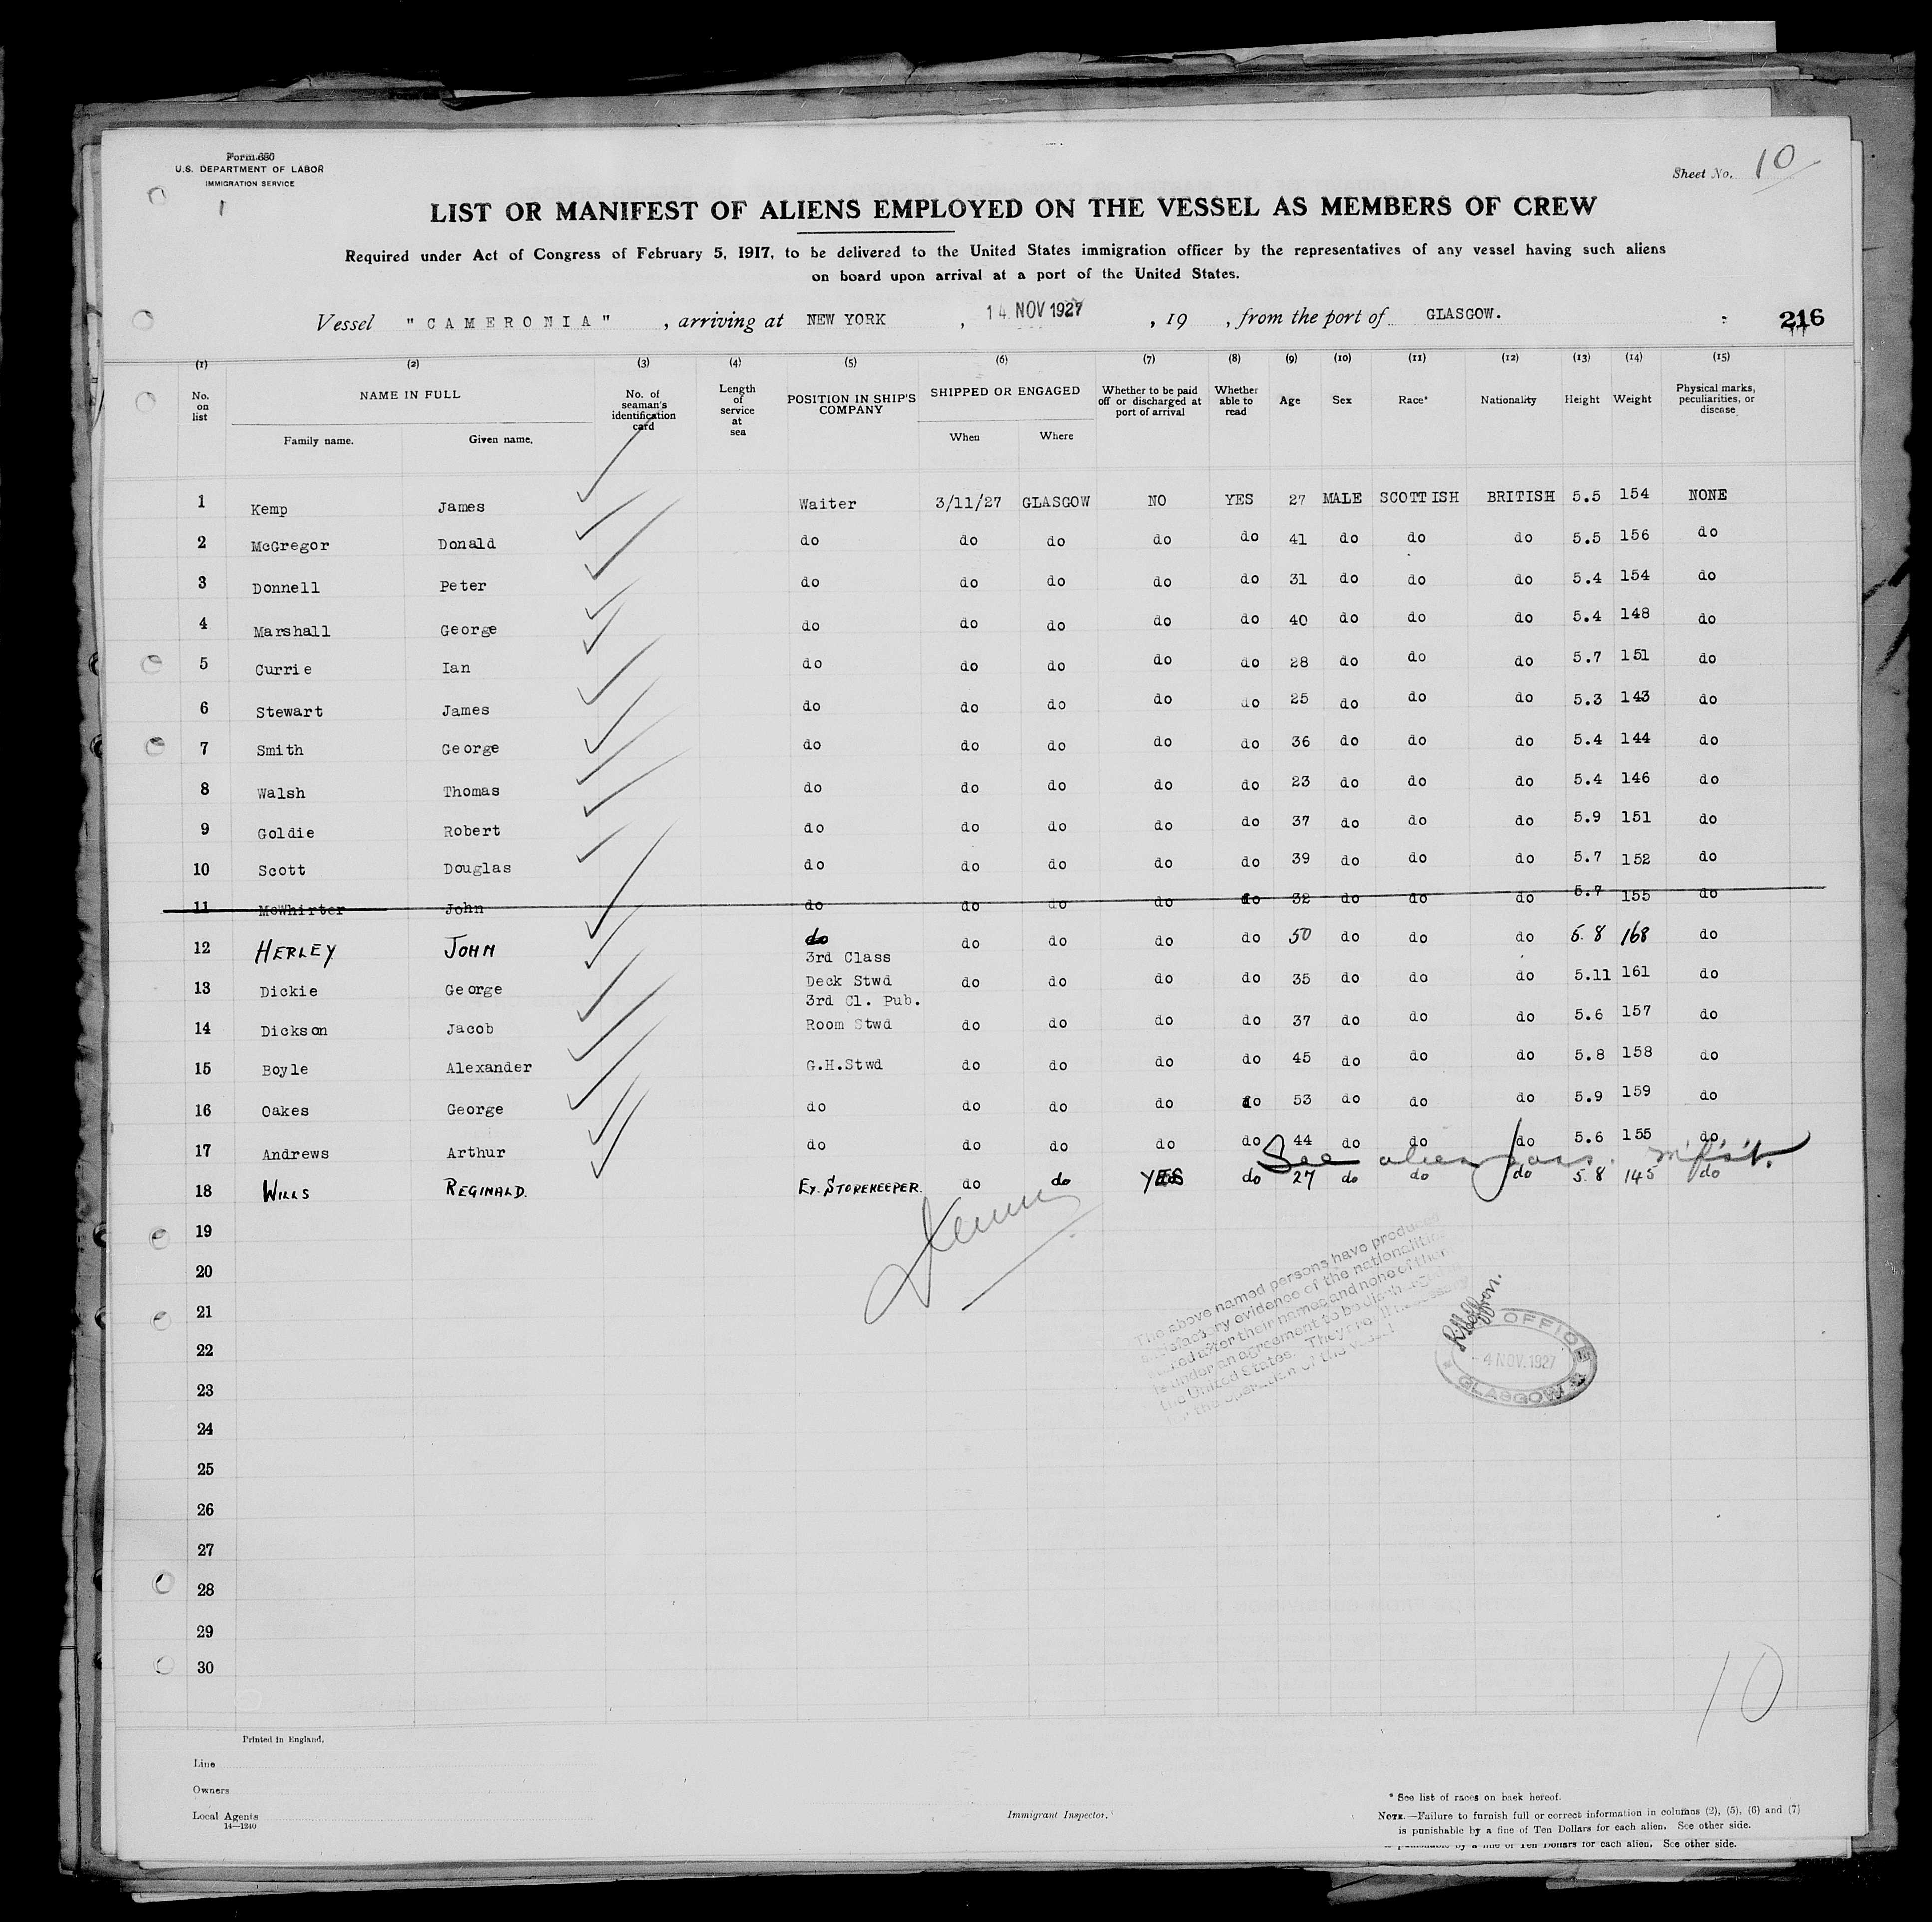 Form 680
U.S. DEPARTMENT OF LABOR
IMMIGRATION SERVICE
Sheet No. 10
LIST OR MANIFEST OF ALIENS EMPLOYED ON THE VESSEL AS MEMBERS OF CREW
Required under Act of Congress of February 5, 1917, to be delivered to the United States immigration officer by the representatives of any vessel having such aliens
on board upon arrival at a port of the United States.
Vessel "CAMERONIA", arriving at NEW YORK, 14 NOV 1927, 19 , from the port of GLASGOW. 216
(1) (2) (3) (4) (5) (6) (7) (8) (9) (10) (11) (12) (13) (14) (15)
No. on list NAME IN FULL Family name. Given name. No. of seaman's identification card Length of service at sea POSITION IN SHIP'S COMPANY SHIPPED OR ENGAGED When Where Whether to be paid off or discharged at port of arrival Whether able to read Age Sex Race* Nationality Height Weight Physical marks, peculiarities, or disease
1 Kemp James Waiter 3/11/27 GLASGOW NO YES 27 MALE SCOTTISH BRITISH 5.5 154 NONE
2 McGregor Donald do do do do do 41 do do do 5.5 156 do
3 Donnell Peter do do do do do 31 do do do 5.4 154 do
4 Marshall George do do do do do 40 do do do 5.4 148 do
5 Currie Ian do do do do do 28 do do do 5.7 151 do
6 Stewart James do do do do do 25 do do do 5.3 143 do
7 Smith George do do do do do 36 do do do 5.4 144 do
8 Walsh Thomas do do do do do 23 do do do 5.4 146 do
9 Goldie Robert do do do do do 37 do do do 5.9 151 do
10 Scott Douglas do do do do do 39 do do do 5.7 152 do
11 McWhirter John do do do do do 32 do do do 5.7 155 do
12 HERLEY JOHN do do do do do 50 do do do 5.8 168 do
3rd Class
13 Dickie George Deck Stwd do do do do 35 do do do 5.11 161 do
3rd Cl. Pub.
14 Dickson Jacob Room Stwd do do do do 37 do do do 5.6 157 do
15 Boyle Alexander G.H.Stwd do do do do 45 do do do 5.8 158 do
16 Oakes George do do do do do 53 do do do 5.9 159 do
17 Andrews Arthur do do do do do 44 do do do 5.6 155 do
See alien pass. mfst.
18 WILLS REGINALD. Ex. STOREKEEPER. do do YES do 27 do do do 5.8 145 do
19
20
The above named persons have produced
satisfactory evidence of the nationalities
stated after their names and none of them
is under an agreement to be discharged in
the United States. They are all necessary
for the operation of this vessel
21
22
OFFICE
- 4 NOV. 1927
GLASGOW
23
24
25
26
27
28
29
30
10
Printed in England.
Line
Owners
Local Agents
14—1240
Immigrant Inspector.
* See list of races on back hereof.
NOTE.—Failure to furnish full or correct information in columns (2), (5), (6) and (7)
is punishable by a fine of Ten Dollars for each alien. See other side.
is punishable by a fine of Ten Dollars for each alien. See other side.